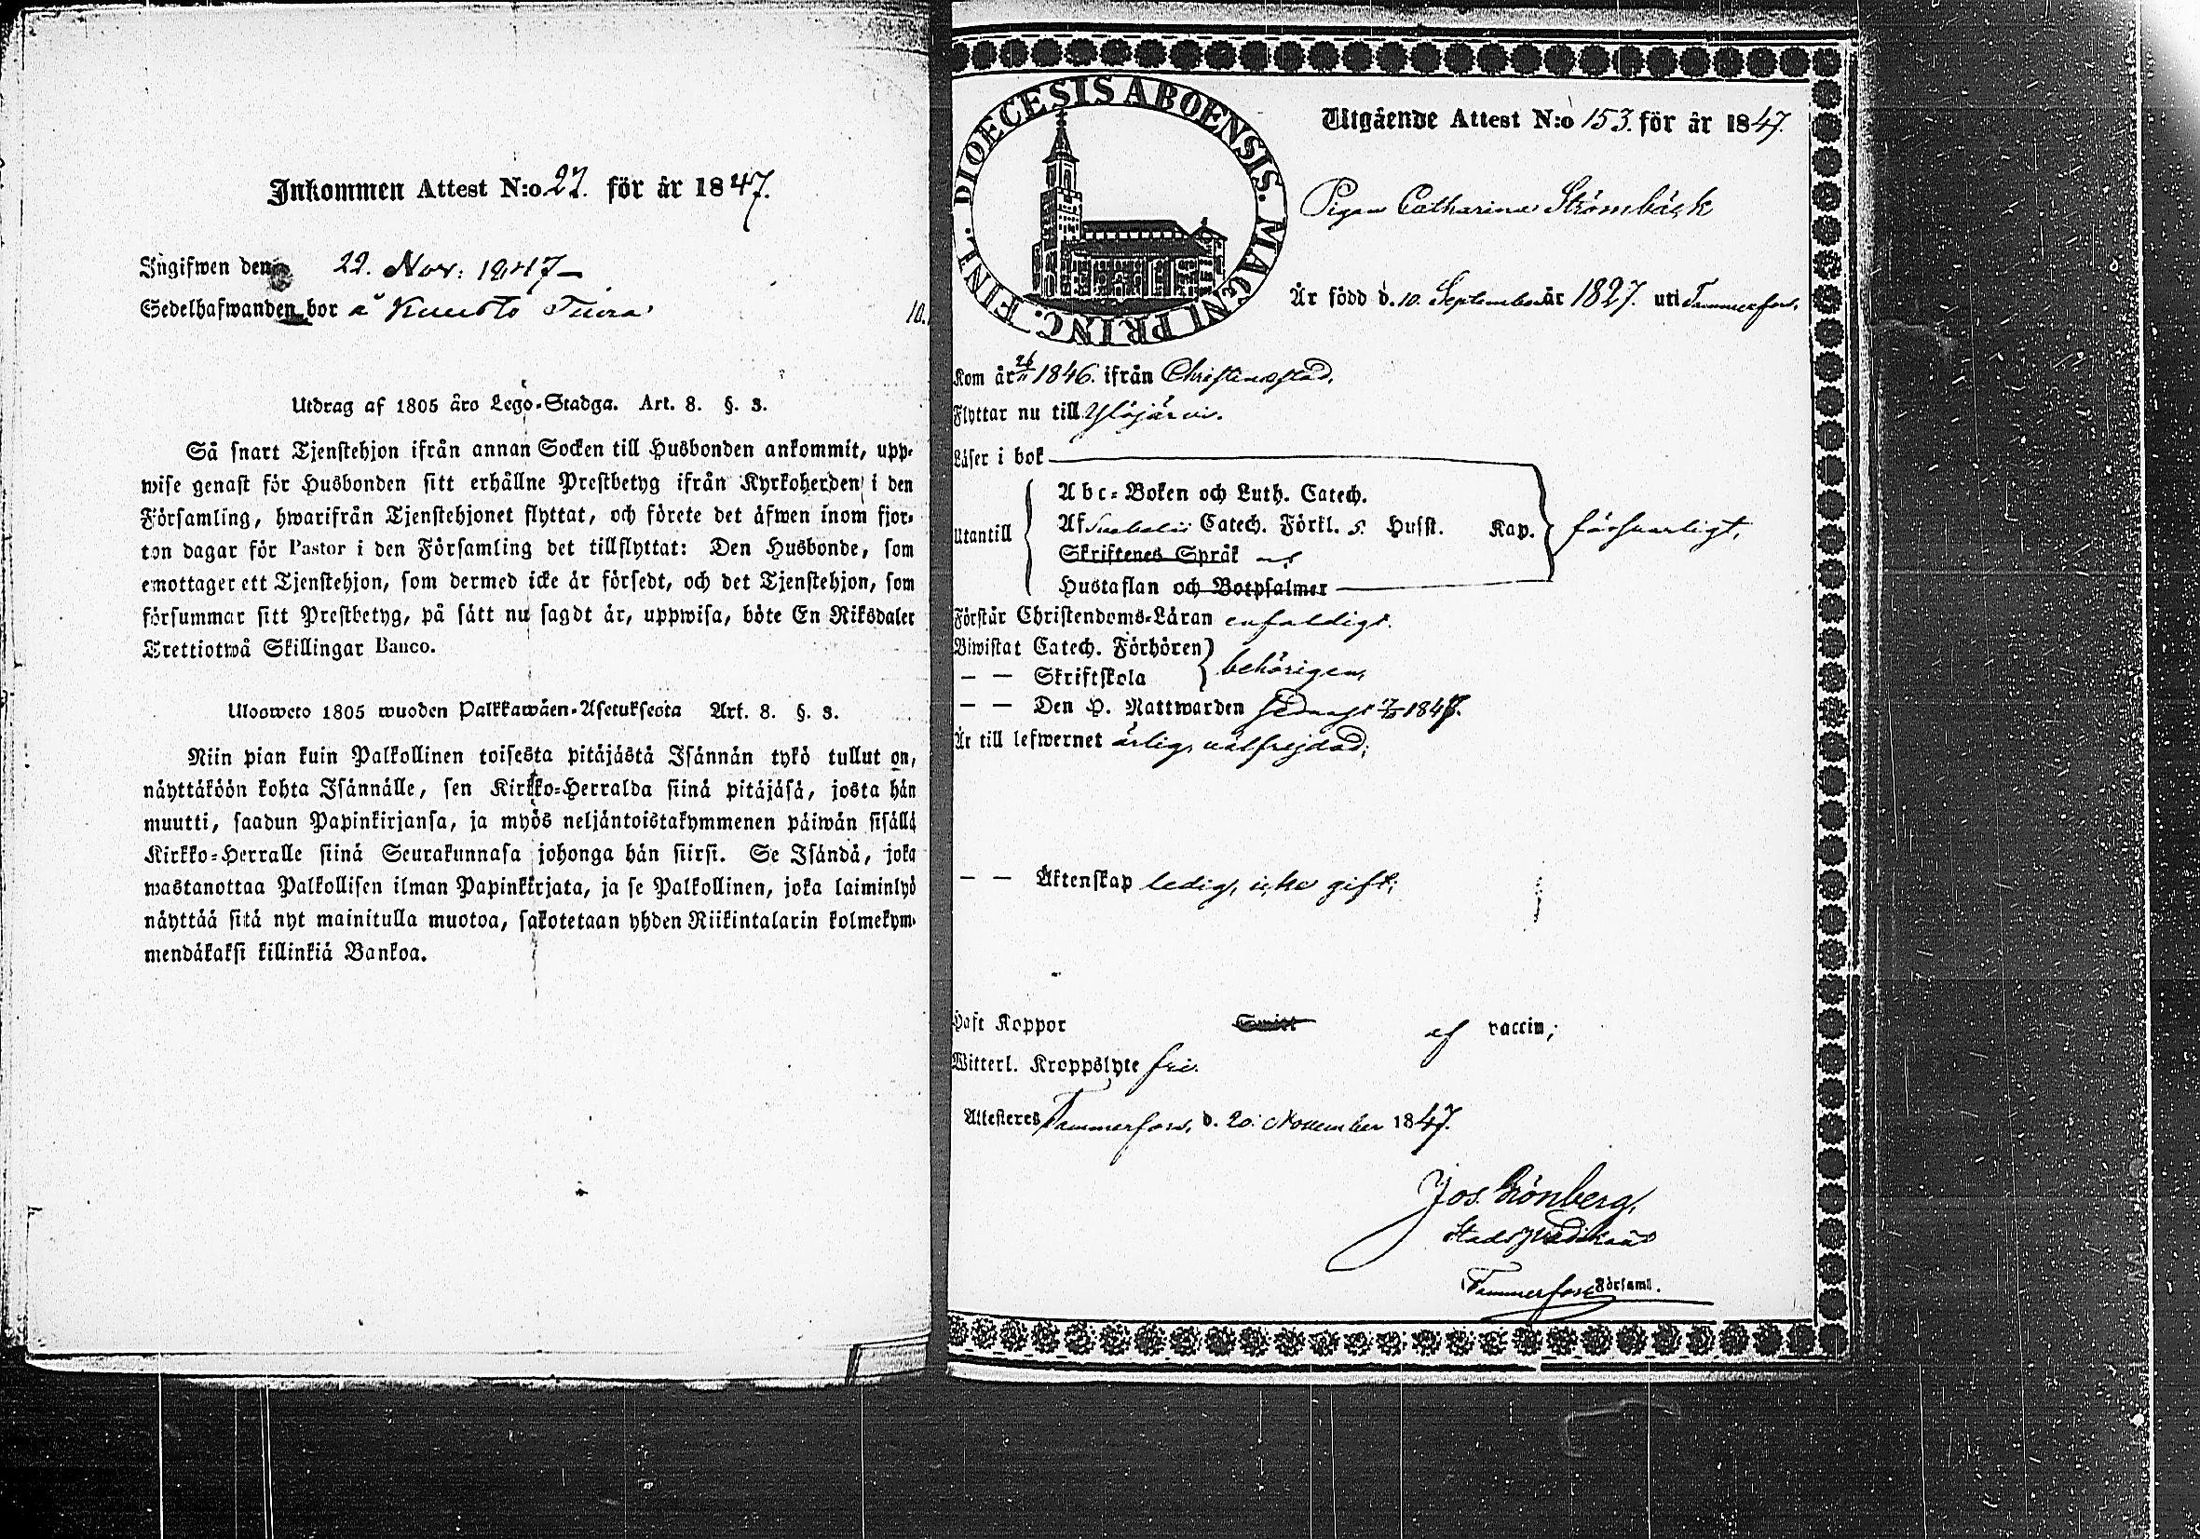 Inkommen Attest N:o 27. för år 1847.
Ingifwen den 22. Nov: 1847
Sedelhafwanden bor å
Utdrag af 1805 års Lego-Stadga. Art. 8. §. 3.
Så snart Tjenstehjon ifrån annan Socken till Husbonden ankommit, upp-
wise genast för Husbonden sitt erhållne Prestbetyg ifrån Kyrkoherden i den
Församling, hwarifrån Tjenstehjonet flyttat, och förete det äfwen inom fjor-
ton dagar för Pastor i den Församling det tillflyttat: Den Husbonde, som
emottager ett Tjenstehjon, som dermed icke är försedt, och det Tjenstehjon, som
försummar sitt Prestbetyg, på sätt nu sagdt är, uppwisa, böte En Riksdaler
Trettiotwå Skillingar Banco.
Ulosweto 1805 wuoden Palkkawäen-Asetuksesta Art. 8. §. 3.
Niin pian kuin Palkollinen toisesta pitäjästä Isännän tykö tullut on,
näyttäköön kohta Isännälle, sen Kirkko-Herralda siinä pitäjäsä, josta hän
muutti, saadun Papinkirjansa, ja myös neljäntoistakymmenen päiwän sisällä
Kirkko-Herralle siinä Seurakunnasa johonga hän siirsi. Se Isändä, joka
wastanottaa Palkollisen ilman Papinkirjata, ja se Palkollinen, joka laiminlyö
näyttää sitä nyt mainitulla muotoa, sakotetaan yhden Riikintalarin kolmekym-
mendäkaksi killinkiä Bankoa.
10.
DIOECESIS ABOENSIS. MAGNI PRINC. FINL.
Utgående Attest N:o 153. för år 1847.
Pigan Catharina Strömbäck
Är född d. 10. September år 1827. uti Tammerfors.
Kom år 1846. ifrån Christinestad.
Flyttar nu till Ylöjärvi.
Läser i bok
Utantill
Abc-Boken och Luth. Catech.
Af Svebelii Catech. Förkl. 5. Hufst. Kap. försvarligt,
Skriftenes Språk
Hustaflan och Botpsalmer
Förstår Christendoms-Läran enfaldigt.
Biwistat Catech. Förhören
— — Skriftskola behörigen,
— — Den H. Nattwarden sednast 1847.
Är till lefwernet ärlig, välfrejdad;
— — Äktenskap ledig, icke gift;
Haft Koppor af vaccin;
Witterl. Kroppslyte fri.
Attesteres Tammerfors, d. 20. November 1847.
Jos. Grönberg,
Stadspredikant
Tammerfors Församl.